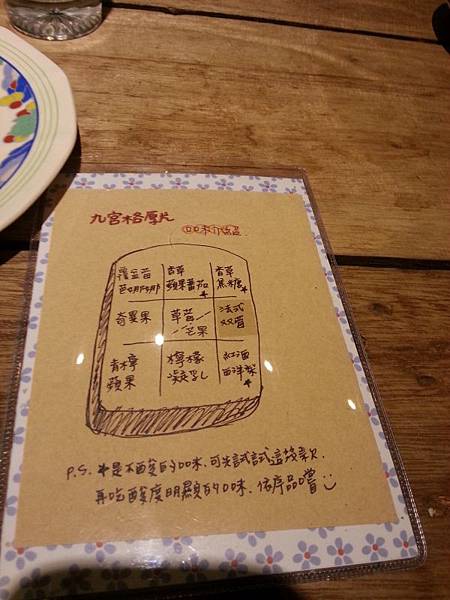 九宮格厚片
口味介紹
覆盆莓
芭娜娜
香草
蘋果蕃茄*
香草
焦糖*
奇異果
草莓/
/芒果
法式
双莓
青檸
蘋果
檸檬
凝乳
紅酒
西洋梨*
P.S. *是不酸的口味,可先試試這幾款,
再吃酸度明顯的口味,依序品嚐